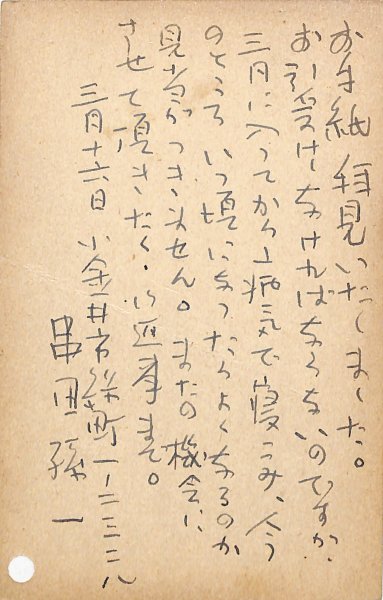 お手紙拝見いたしました。
お引受けしなければならないのですが、
三月に入ってから病気で寝こみ、今
のところいつ頃になったらよくなるのか
見当がつきません。またの機会に
させて頂きたく、御返事まで。
三月十六日 小金井市緑町
串田孫一